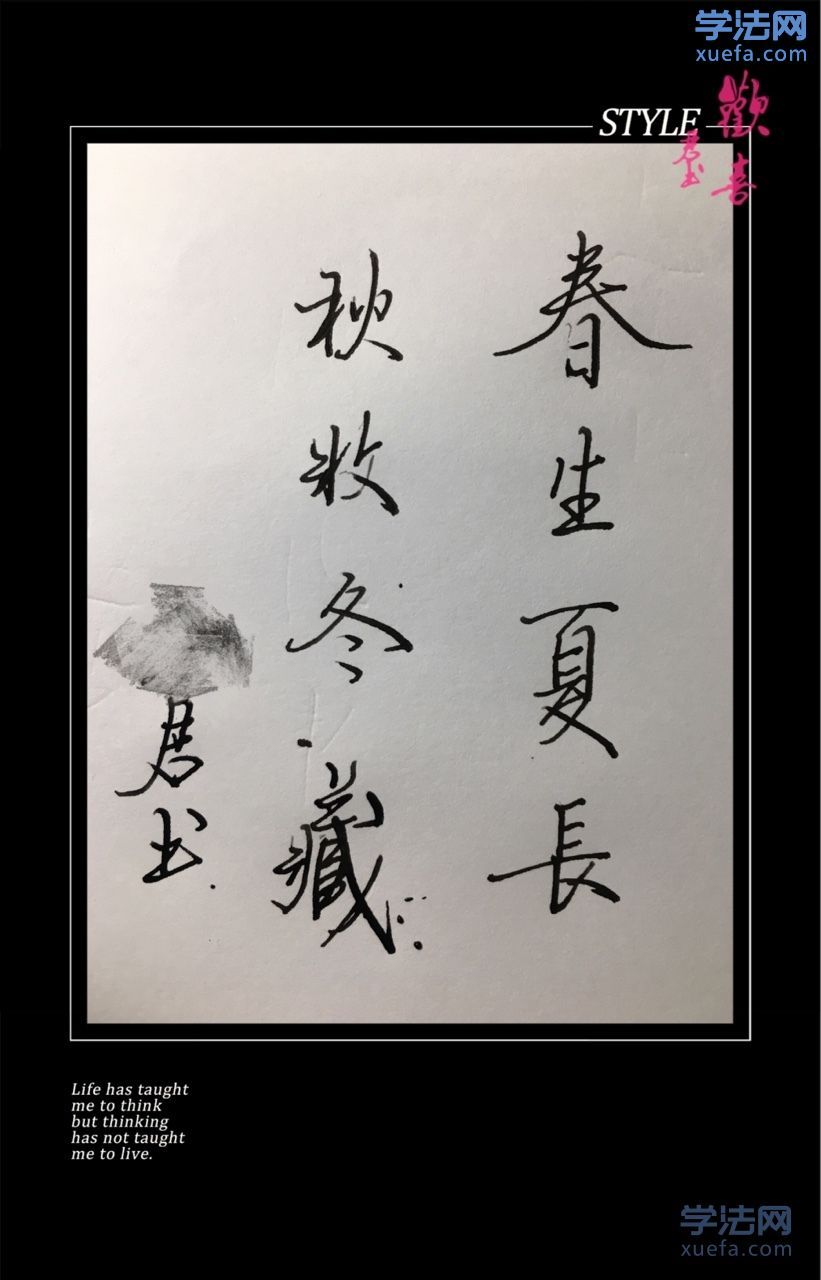 学法网
xuefa.com
STYLE
歡喜
君书
春生夏長
秋收冬藏
君书
Life has taught
me to think
but thinking
has not taught
me to live.
学法网
xuefa.com